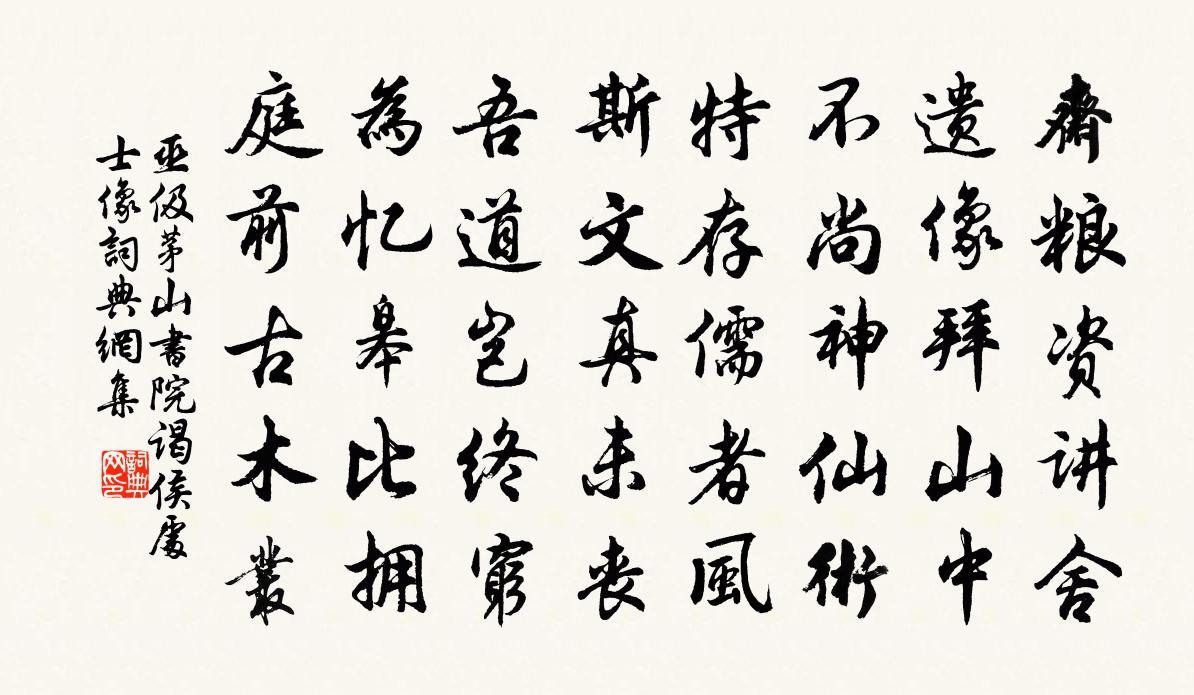 齋粮资讲舍
遗像拜山中
不尚神仙術
特存儒者風
斯文真未丧
吾道岂终窮
為忆皋比拥
庭前古木叢
巫伋茅山書院谒侯處
士像詞典網集
詞典
网印